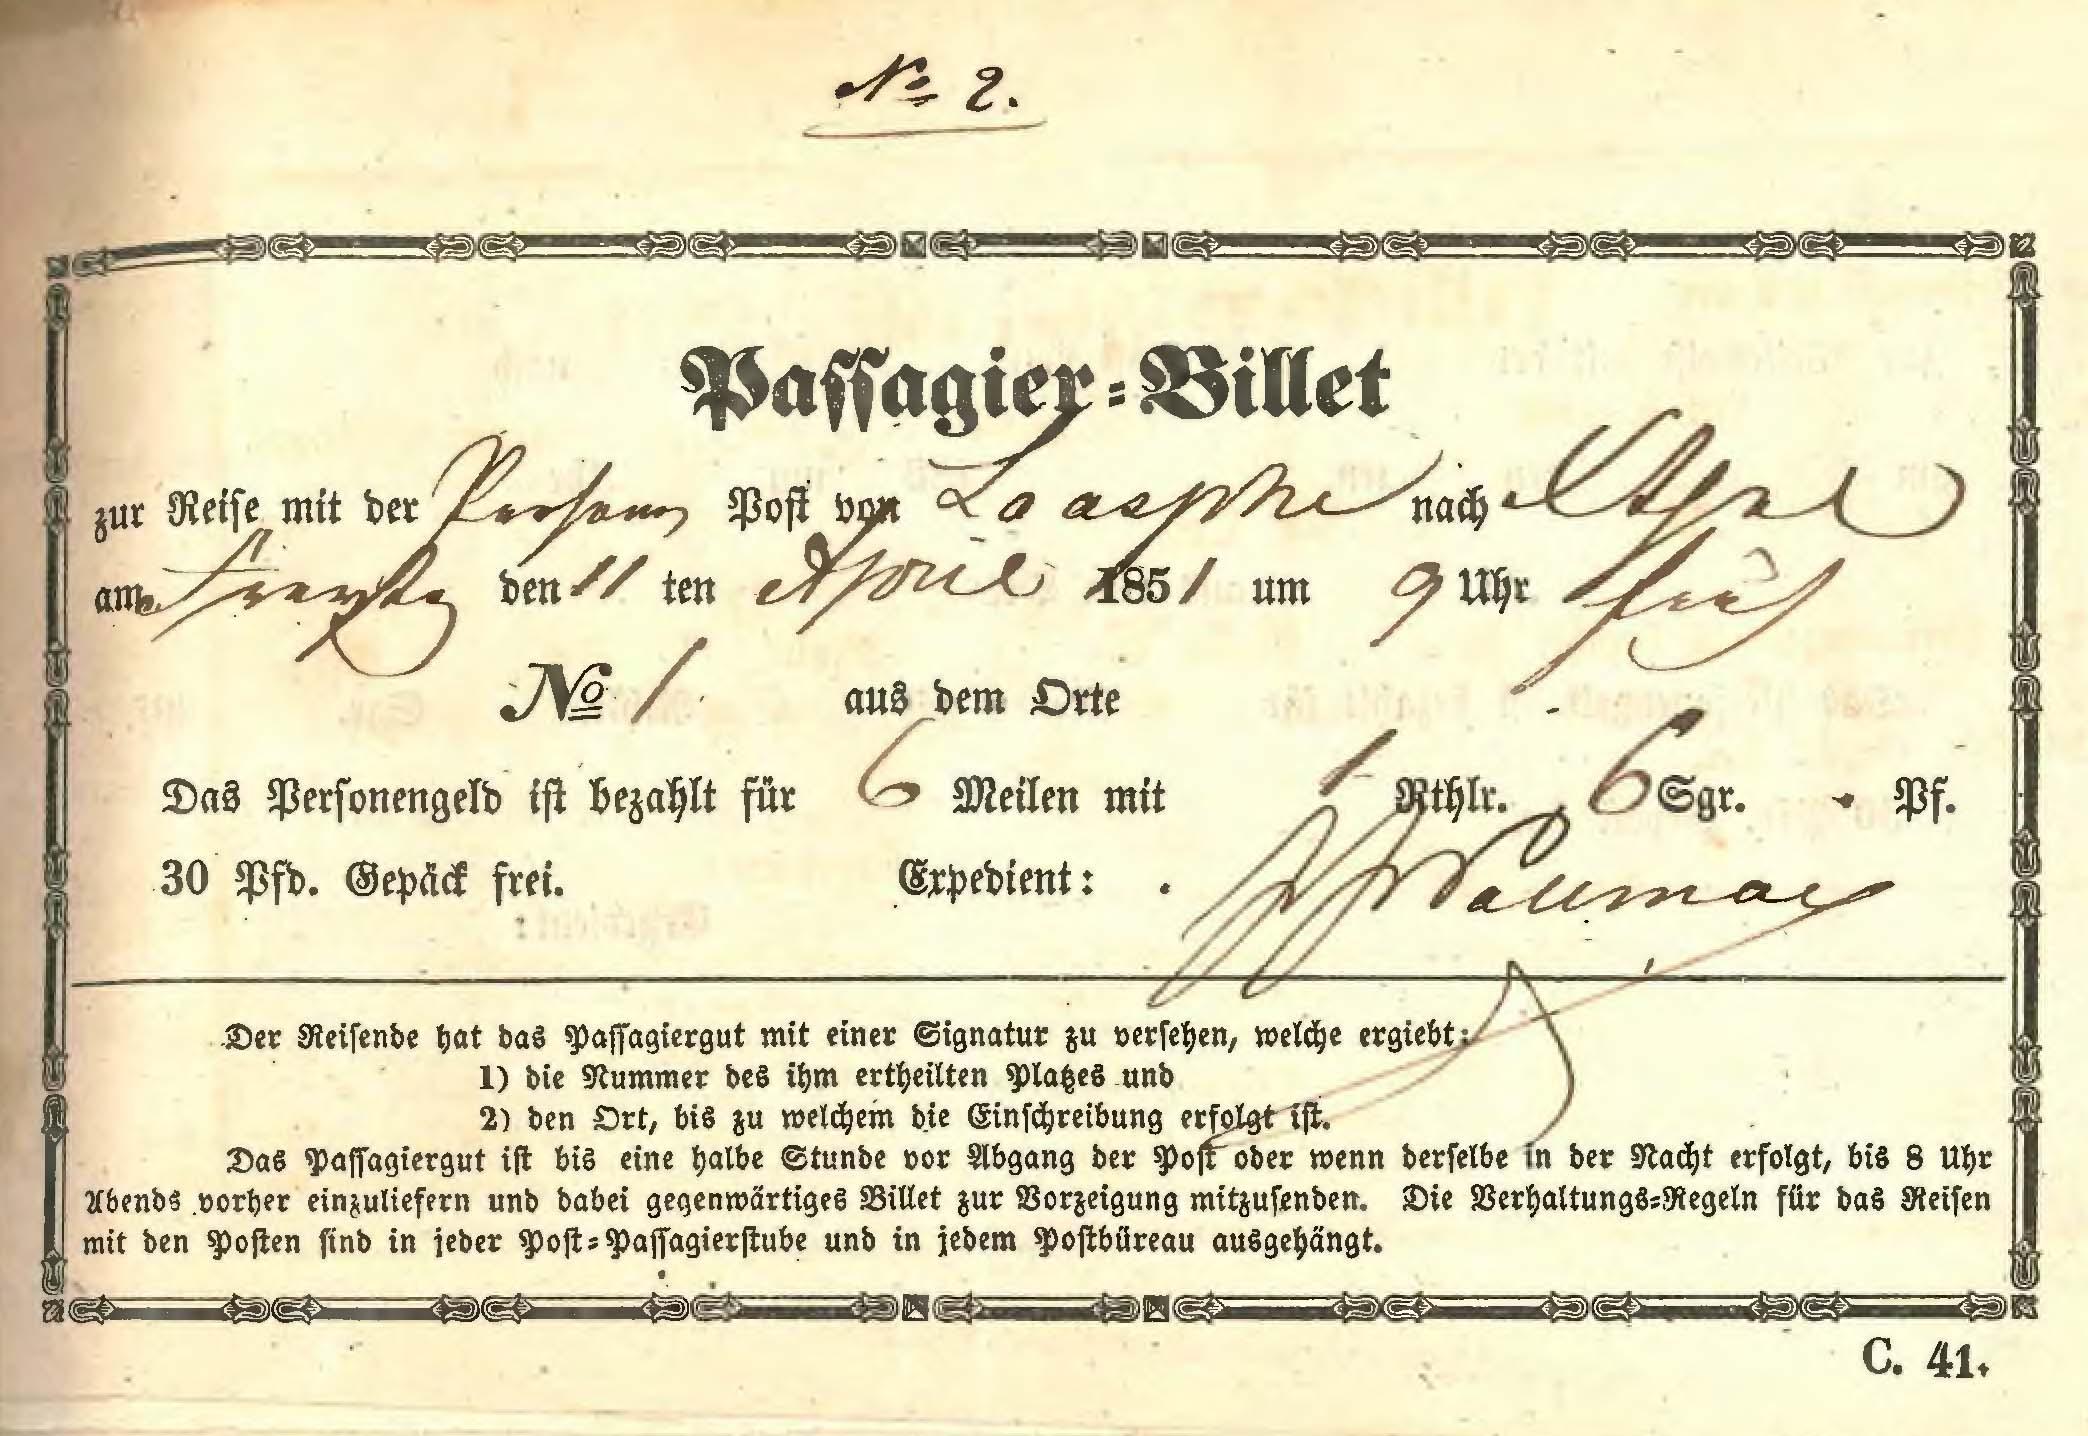 No 2.
Passagier-Billet
zur Reise mit der Personen Post von Laasphe nach
am Freytag den 11 ten April 1851 um 9 Uhr früh
No 1 aus dem Orte
Das Personengeld ist bezahlt für 6 Meilen mit 1 Rthlr. 6 Sgr. . Pf.
30 Pfd. Gepäck frei. Expedient:
Der Reisende hat das Passagiergut mit einer Signatur zu versehen, welche ergiebt:
1) die Nummer des ihm ertheilten Platzes und
2) den Ort, bis zu welchem die Einschreibung erfolgt ist.
Das Passagiergut ist bis eine halbe Stunde vor Abgang der Post oder wenn derselbe in der Nacht erfolgt, bis 8 Uhr
Abends vorher einzuliefern und dabei gegenwärtiges Billet zur Vorzeigung mitzusenden. Die Verhaltungs-Regeln für das Reisen
mit den Posten sind in jeder Post-Passagierstube und in jedem Postbüreau ausgehängt.
C. 41.